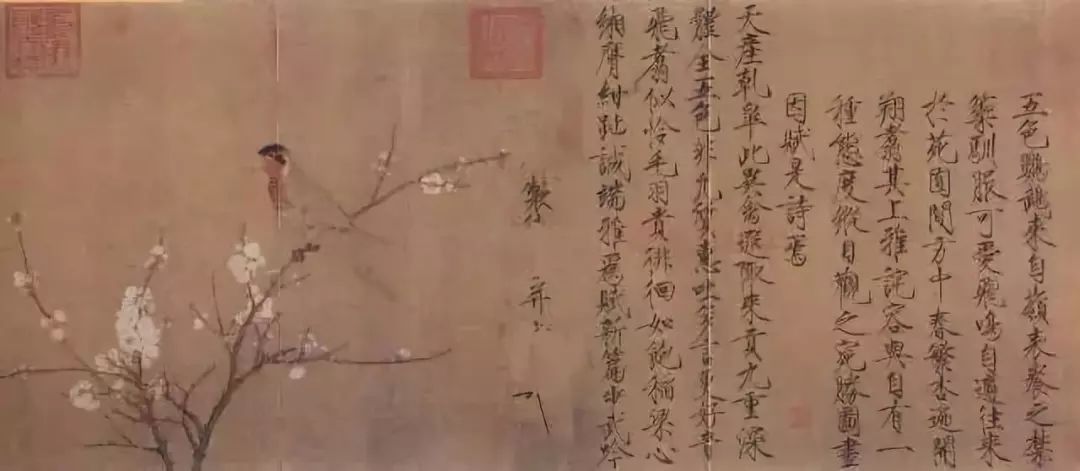 五色鸚鵡來自嶺表養之禁
籞馴服可愛飛鳴自適往來
於苑囿間方中春繁杏遍開
翔翥其上雅詫容與自有一
種態度縱目觀之宛勝圖畫
因賦是詩焉
天產乾皋此異禽遐陬來貢九重深
體全五色非凡質惠吐多言更好音
飛翥似憐毛羽貴徘徊如飽稻粱心
緗膺紺趾誠端雅爲賦新篇步武吟
製 并